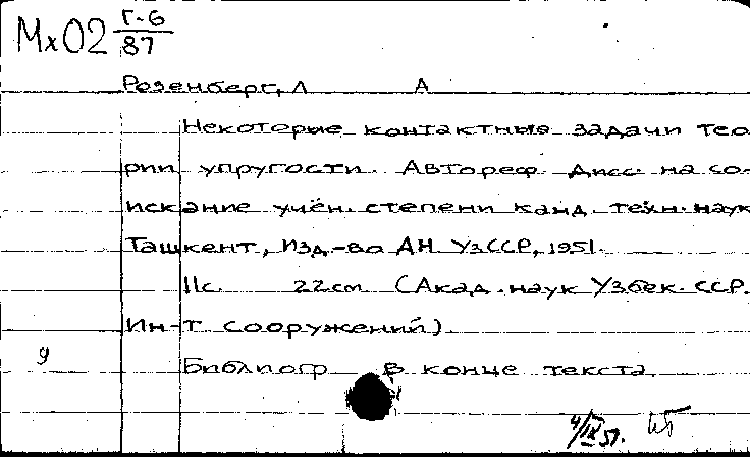 Мх02 Г-6/87
Розенберг, Л А
Некоторые контактные задачи тео
рии упругости. Автореф. дисс. на со-
искание учён. степени канд. техн. наук
Ташкент, Изд-во АН УзССР, 1951.
11с. 22см (Акад. наук Узбек. ССР.
Ин-т сооружений)
9
Библиогр в конце текста
4/IX 51.